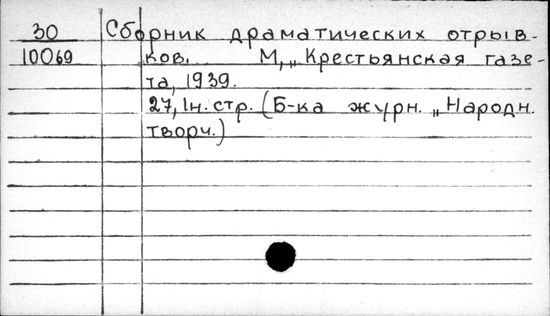 30 Сборник драматических отрыв-
10069 ков. М, „Крестьянская газе-
та, 1939.
27, Iн. стр. (Б-ка журн. „Народн.
творч.)